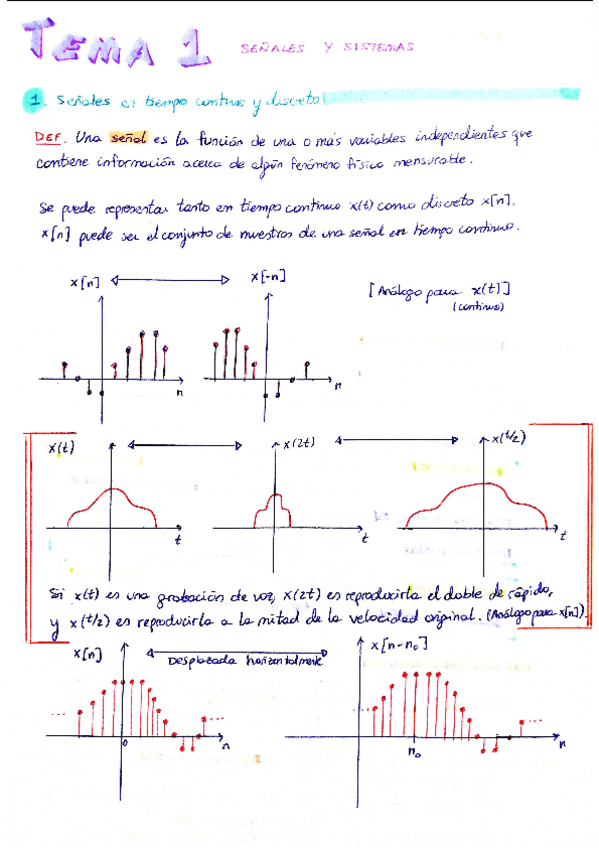 TEMA 1 SEÑALES Y SISTEMAS
1. Señales en tiempo continuo y discreto
DEF. Una señal es la función de una o más variables independientes que
contiene información acerca de algún fenómeno físico mensurable.
Se puede representar tanto en tiempo continuo x(t) como discreto x[n].
x[n] puede ser el conjunto de muestros de una señal en tiempo continuo.
x[n] x[-n] [Análogo para x(t)]
(continuo)
n n
x(t) x(2t) x(t/2)
t t t
Si x(t) es una grabación de voz, x(2t) es reproducirla el doble de rápido,
y x(t/2) es reproducirla a la mitad de la velocidad original. (Análogo para x[n]).
x[n] Desplazada horizontalment. x[n-n₀]
... ... ... ...
0 n n₀ n